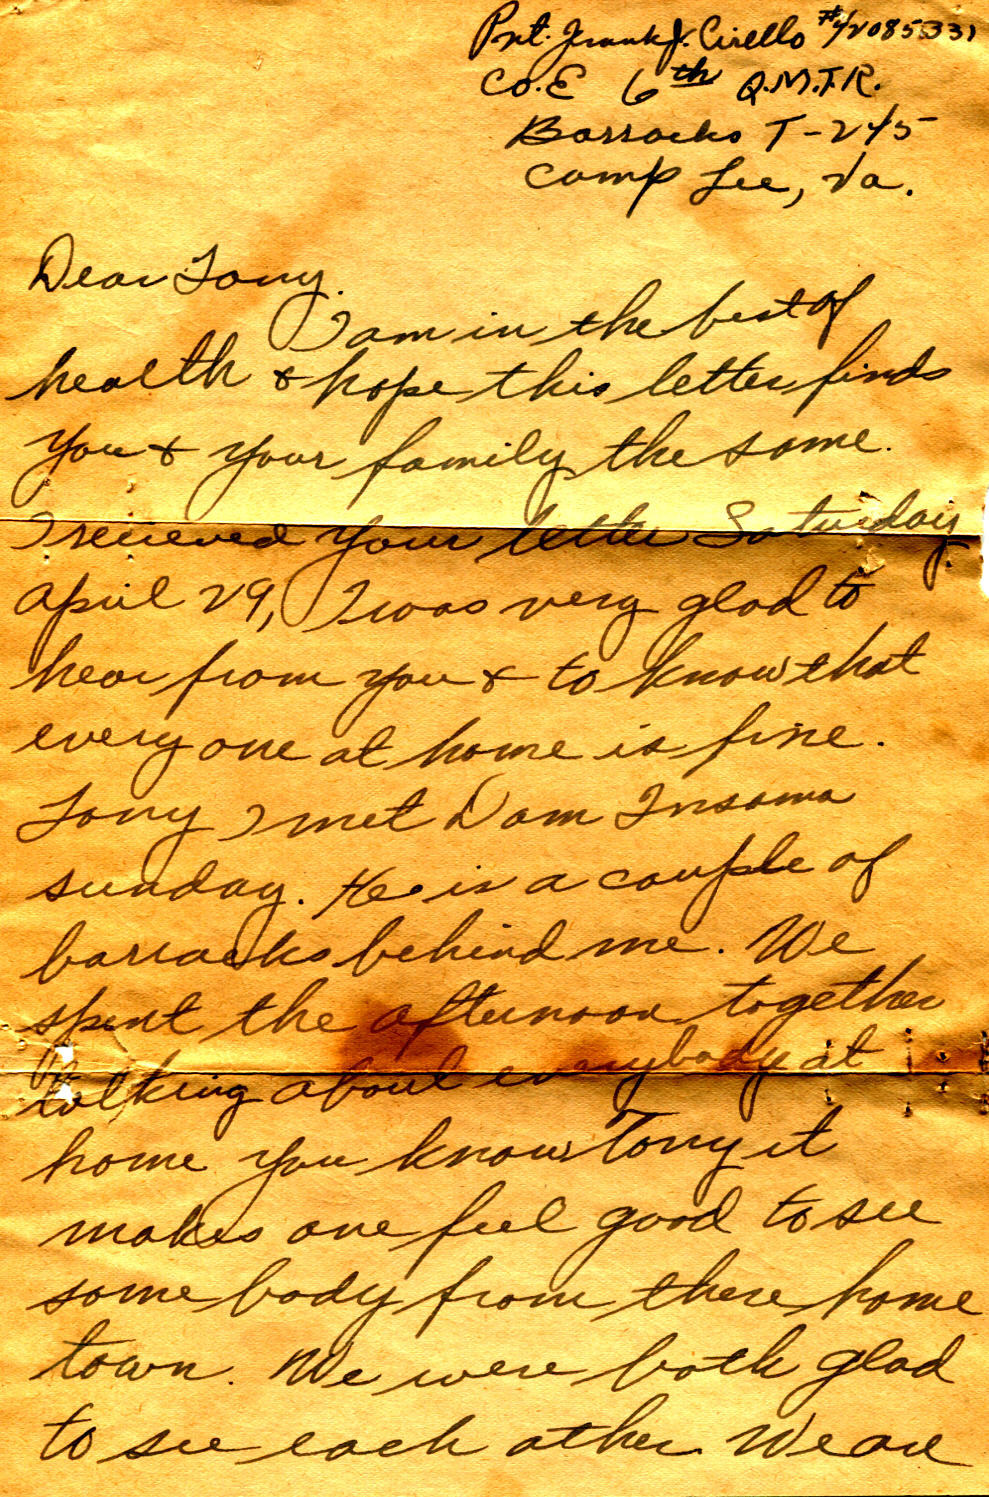 Pvt. Frank J. Cirello #42085331
Co. E 6th Q.M.T.R.
Barracks T-245
Camp Lee, Va.
Dear Tony.
I am in the best of
health & hope this letter finds
you & your family the same.
I recieved your letter Saturday
April 29, I was very glad to
hear from you & to know that
every one at home is fine.
Tony I met Dom Insama
sunday. He is a couple of
barracks behind me. We
spent the afternoon together
talking about everybody at
home you know Tony it
makes one feel good to see
some body from there home
town. We were both glad
to see each other. We are